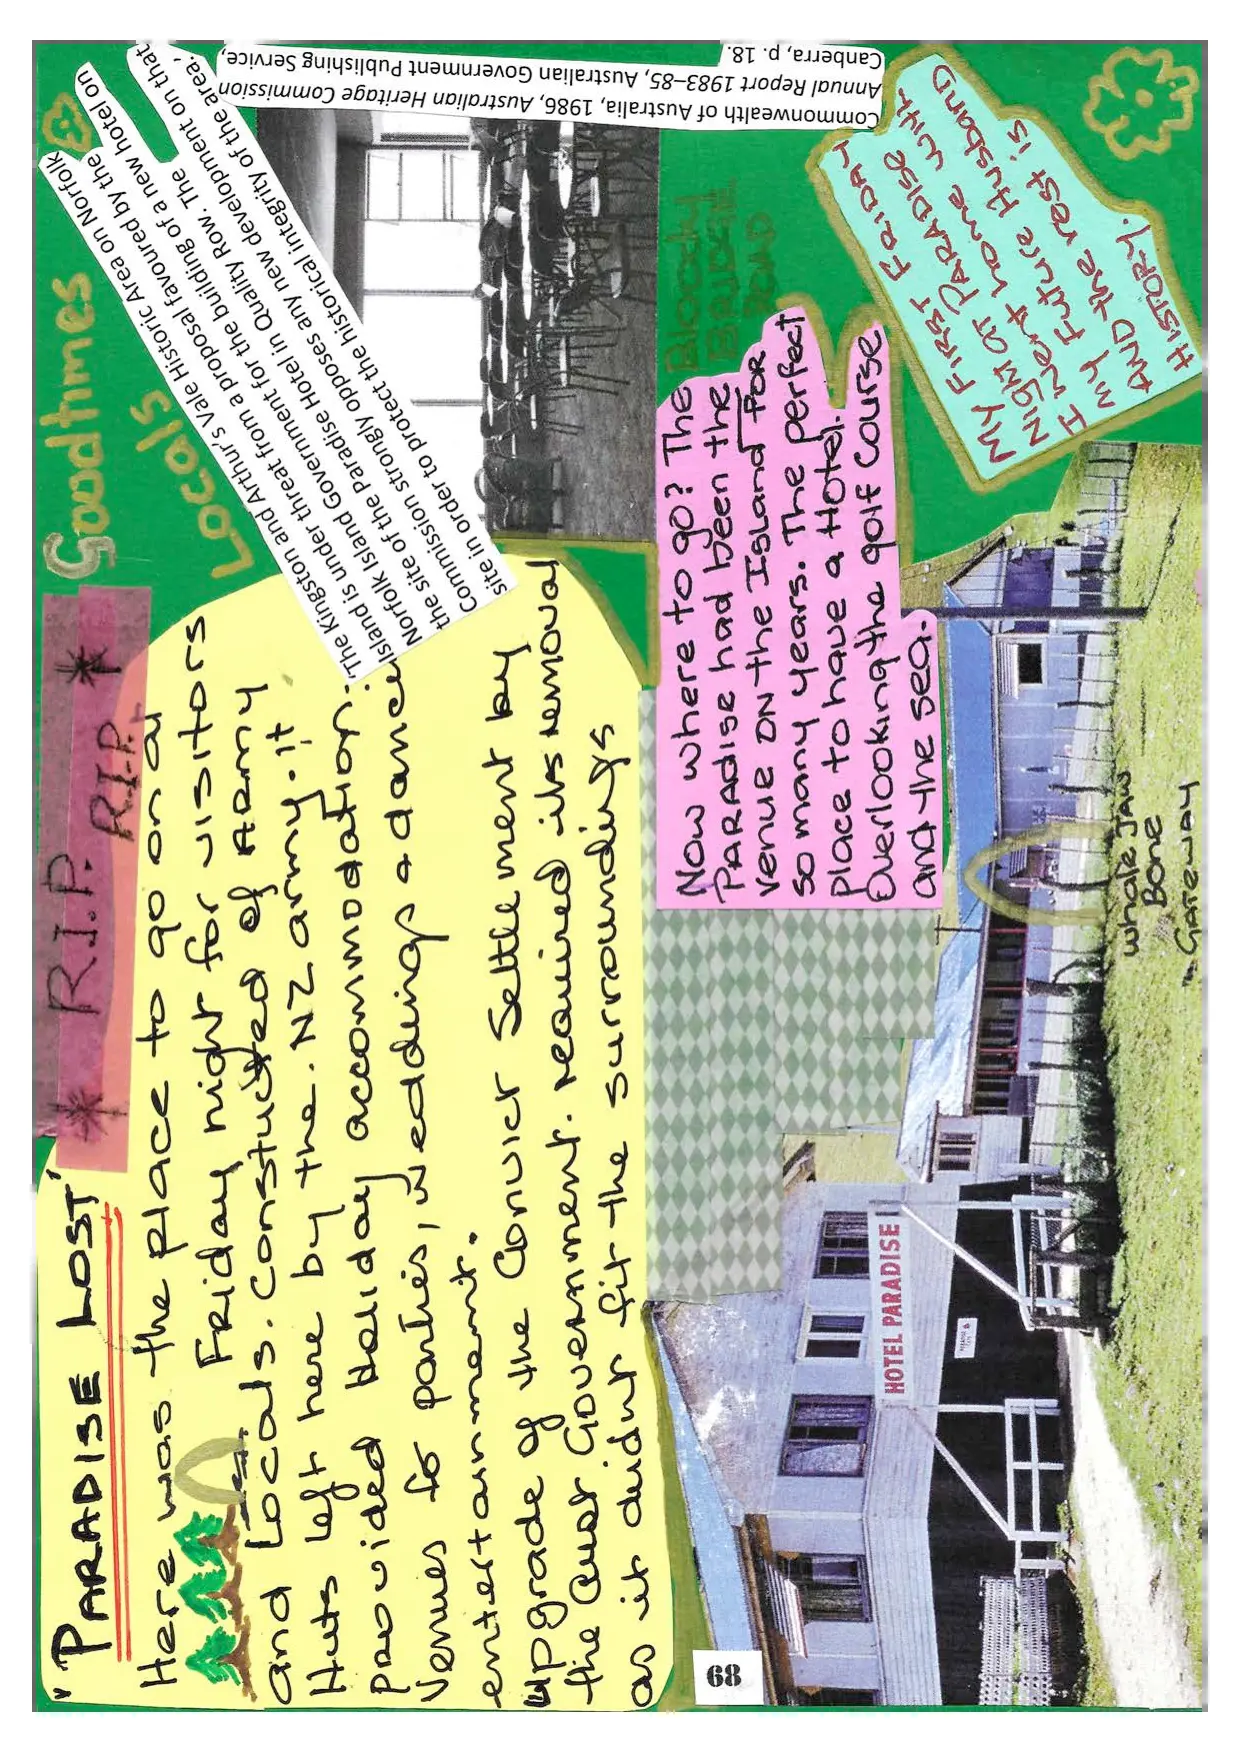 "PARADISE LOST"
* R.I.P. R.I.P. *
Goodtimes
Locals
Here was the place to go on a
Friday night for visitors
and Locals. Constucted of ARMY
Huts left here by the NZ army. it
provided Holiday accommodation.
Venues for parties, weddings & dances
entertainment.
upgrade of the Convict Settlement by
the Aust Government. required its removal
as it didnt fit the surroundings
The Kingston and Arthur's Vale Historic Area on Norfolk
Island is under threat from a proposal favoured by the
Norfolk Island Government for the building of a new hotel on
the site of the Paradise Hotel in Quality Row. The
Commission strongly opposes any new development on that
site in order to protect the historical integrity of the area.
Commonwealth of Australia, 1986, Australian Heritage Commission
Annual Report 1983–85, Australian Government Publishing Service,
Canberra, p. 18.
BLOODY
BRIDGE
Now where to go? The
PARADISE had been the
venue on the Island FOR
so many years. The perfect
place to have a Hotel.
Overlooking the golf Course
and the sea.
MY FIRST FRIDAY
Night AT PARADISE
I went home with
my Future Husband
AND the rest is
HISTORY.
HOTEL PARADISE
whale Jaw
Bone
Gateway
68